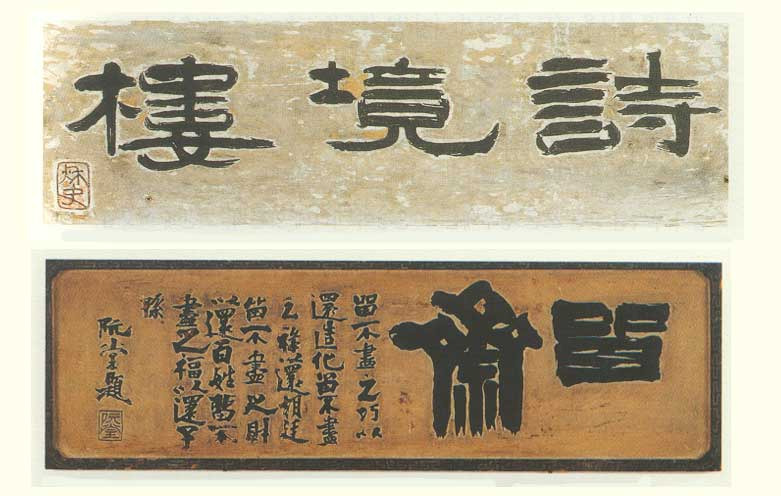 詩境樓
秋史
留齋
留不盡之巧以
還造化留不盡
之祿以還朝廷
留不盡之財
以還百姓留不
盡之福以還子
孫
阮堂題
阮堂